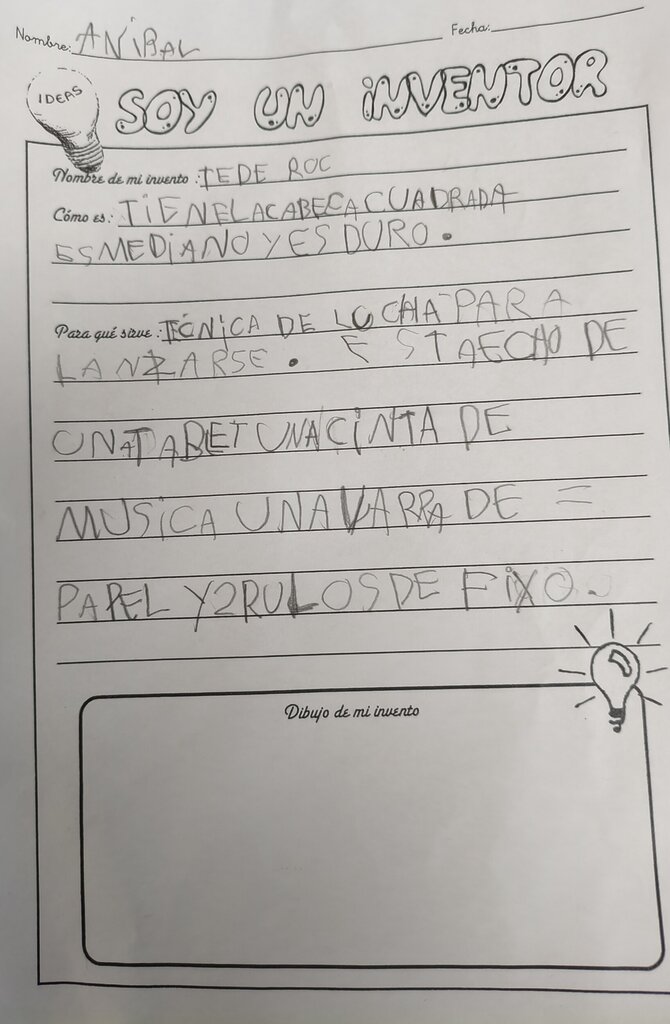 Nombre: ANIBAL Fecha:
IDEAS
SOY UN INVENTOR
Nombre de mi invento : TEDE ROC
Cómo es: TIENELACABECACUADRADA
ESMEDIANOYESDURO.
Para qué sirve : TÉCNICA DE LUCHA PARA
LANZARSE. ESTAECHO DE
UNATABLET UNACINTA DE
MUSICA UNAVARRA DE =
PAPEL Y2RULOSDE FIXO.
Dibujo de mi invento